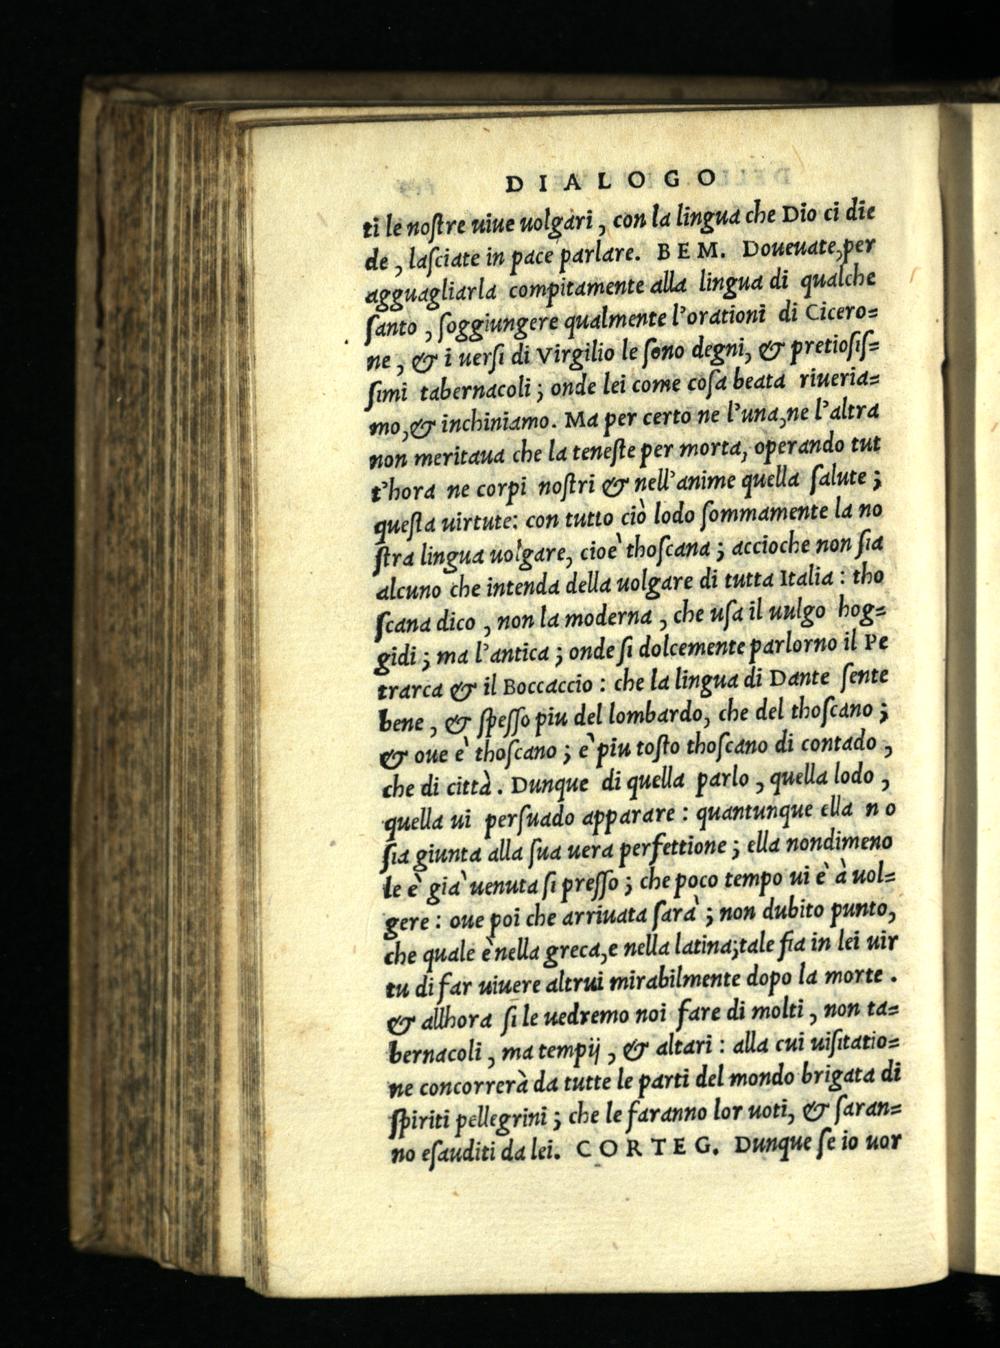 DIALOGO
ti le noſtre uiue uolgari, con la lingua che Dio ci die
de, laſciate in pace parlare. BEM. Doueuate, per
agguagliarla compitamente alla lingua di qualche
ſanto, ſoggiungere qualmente l'orationi di Cicero=
ne, & i uerſi di Virgilio le ſono degni, & pretioſiſ=
ſimi tabernacoli; onde lei come coſa beata riueria=
mo, & inchiniamo. Ma per certo ne l'una, ne l'altra
non meritaua che la teneſte per morta, operando tut
t'hora ne corpi noſtri & nell'anime quella ſalute;
queſta uirtute: con tutto ciò lodo ſommamente la no
ſtra lingua uolgare, cioe` thoſcana; accioche non ſia
alcuno che intenda della uolgare di tutta Italia: tho
ſcana dico, non la moderna, che uſa il uulgo hog=
gidi; ma l'antica; onde ſi dolcemente parlorno il Pe
trarca & il Boccaccio: che la lingua di Dante ſente
bene, & ſpeſſo piu del lombardo, che del thoſcano;
& oue e` thoſcano; e` piu toſto thoſcano di contado,
che di città. Dunque di quella parlo, quella lodo,
quella ui perſuado apparare: quantunque ella no
ſia giunta alla ſua uera perfettione; ella nondimeno
le e` gia` uenuta ſi preſſo; che poco tempo ui e` à uol=
gere: oue poi che arriuata ſara`; non dubito punto,
che quale è nella greca, e nella latina; tale fia in lei uir
tu di far uiuere altrui mirabilmente dopo la morte.
& allhora ſi le uedremo noi fare di molti, non ta=
bernacoli, ma tempij, & altari: alla cui uiſitatio=
ne concorrerà da tutte le parti del mondo brigata di
ſpiriti pellegrini; che le faranno lor uoti, & ſaran=
no eſauditi da lei. CORTEG. Dunque ſe io uor